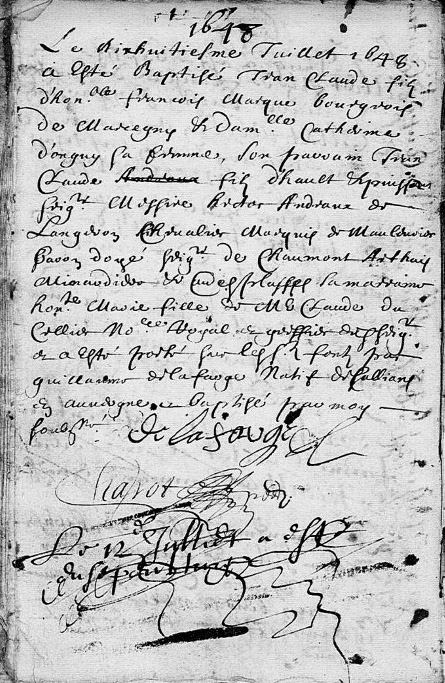 1648
Le dixhuitiesme Juillet 1648
a esté Baptisé Jean Claude filz
d'hon.ble francois Marque bourgeois
de Marcegny & dam.lle Catherine
d'ongny sa femme, son parrain Jean
Claude Andraux filz d'hault & puissant
seig.r Messire hector Andraux de
Langeron Chevalier Marquis de Maulevrier
baron doyé seig.r de Chaumont Arthus
& sa marraine
hon.te Marie fille de M.e Claude du
Cellier No.re Royal et greffier
et a esté porté sur les f. font par
guillaume delafarge Natif de
en auvergne baptisé par moy
soubs.né
de lafarge
Le 12 Juilliet a esté